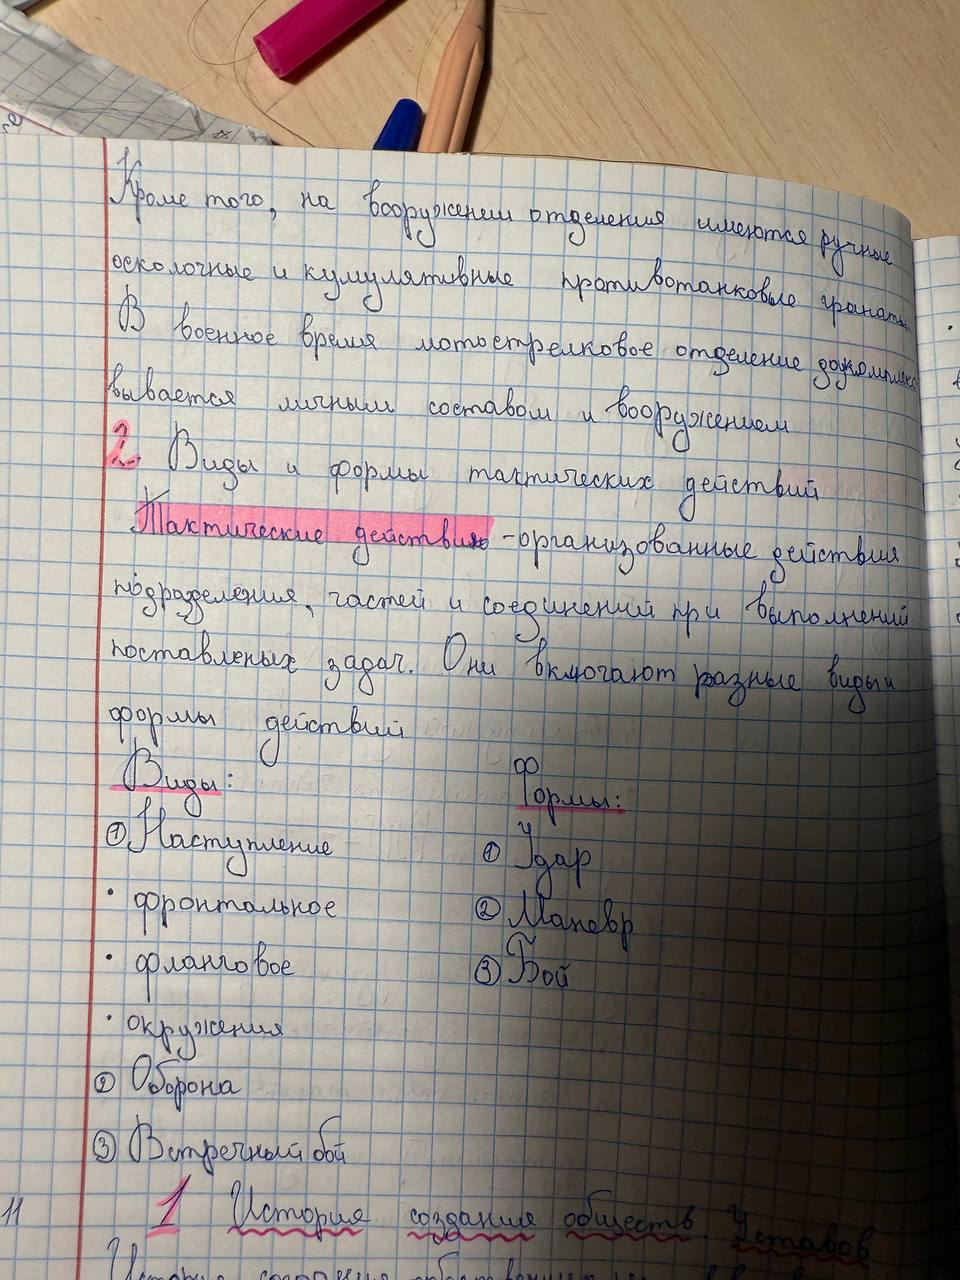 Кроме того, на вооружении отделения имеются ручные
осколочные и кумулятивные противотанковые гранаты.
В военное время мотострелковое отделение доукомплекто
вывается личным составом и вооружением
2. Виды и формы тактических действий
Тактические действия - организованные действия
подразделения, частей и соединений при выполнений
поставленых задач. Они включают разные виды и
формы действий
Виды:
① Наступление
• фронтальное
• фланговое
• окружения
② Оборона
③ Встречный бой
Формы:
① Удар
② Маневр
③ Бой
11
1 История создания обществ. Уставов
История создания